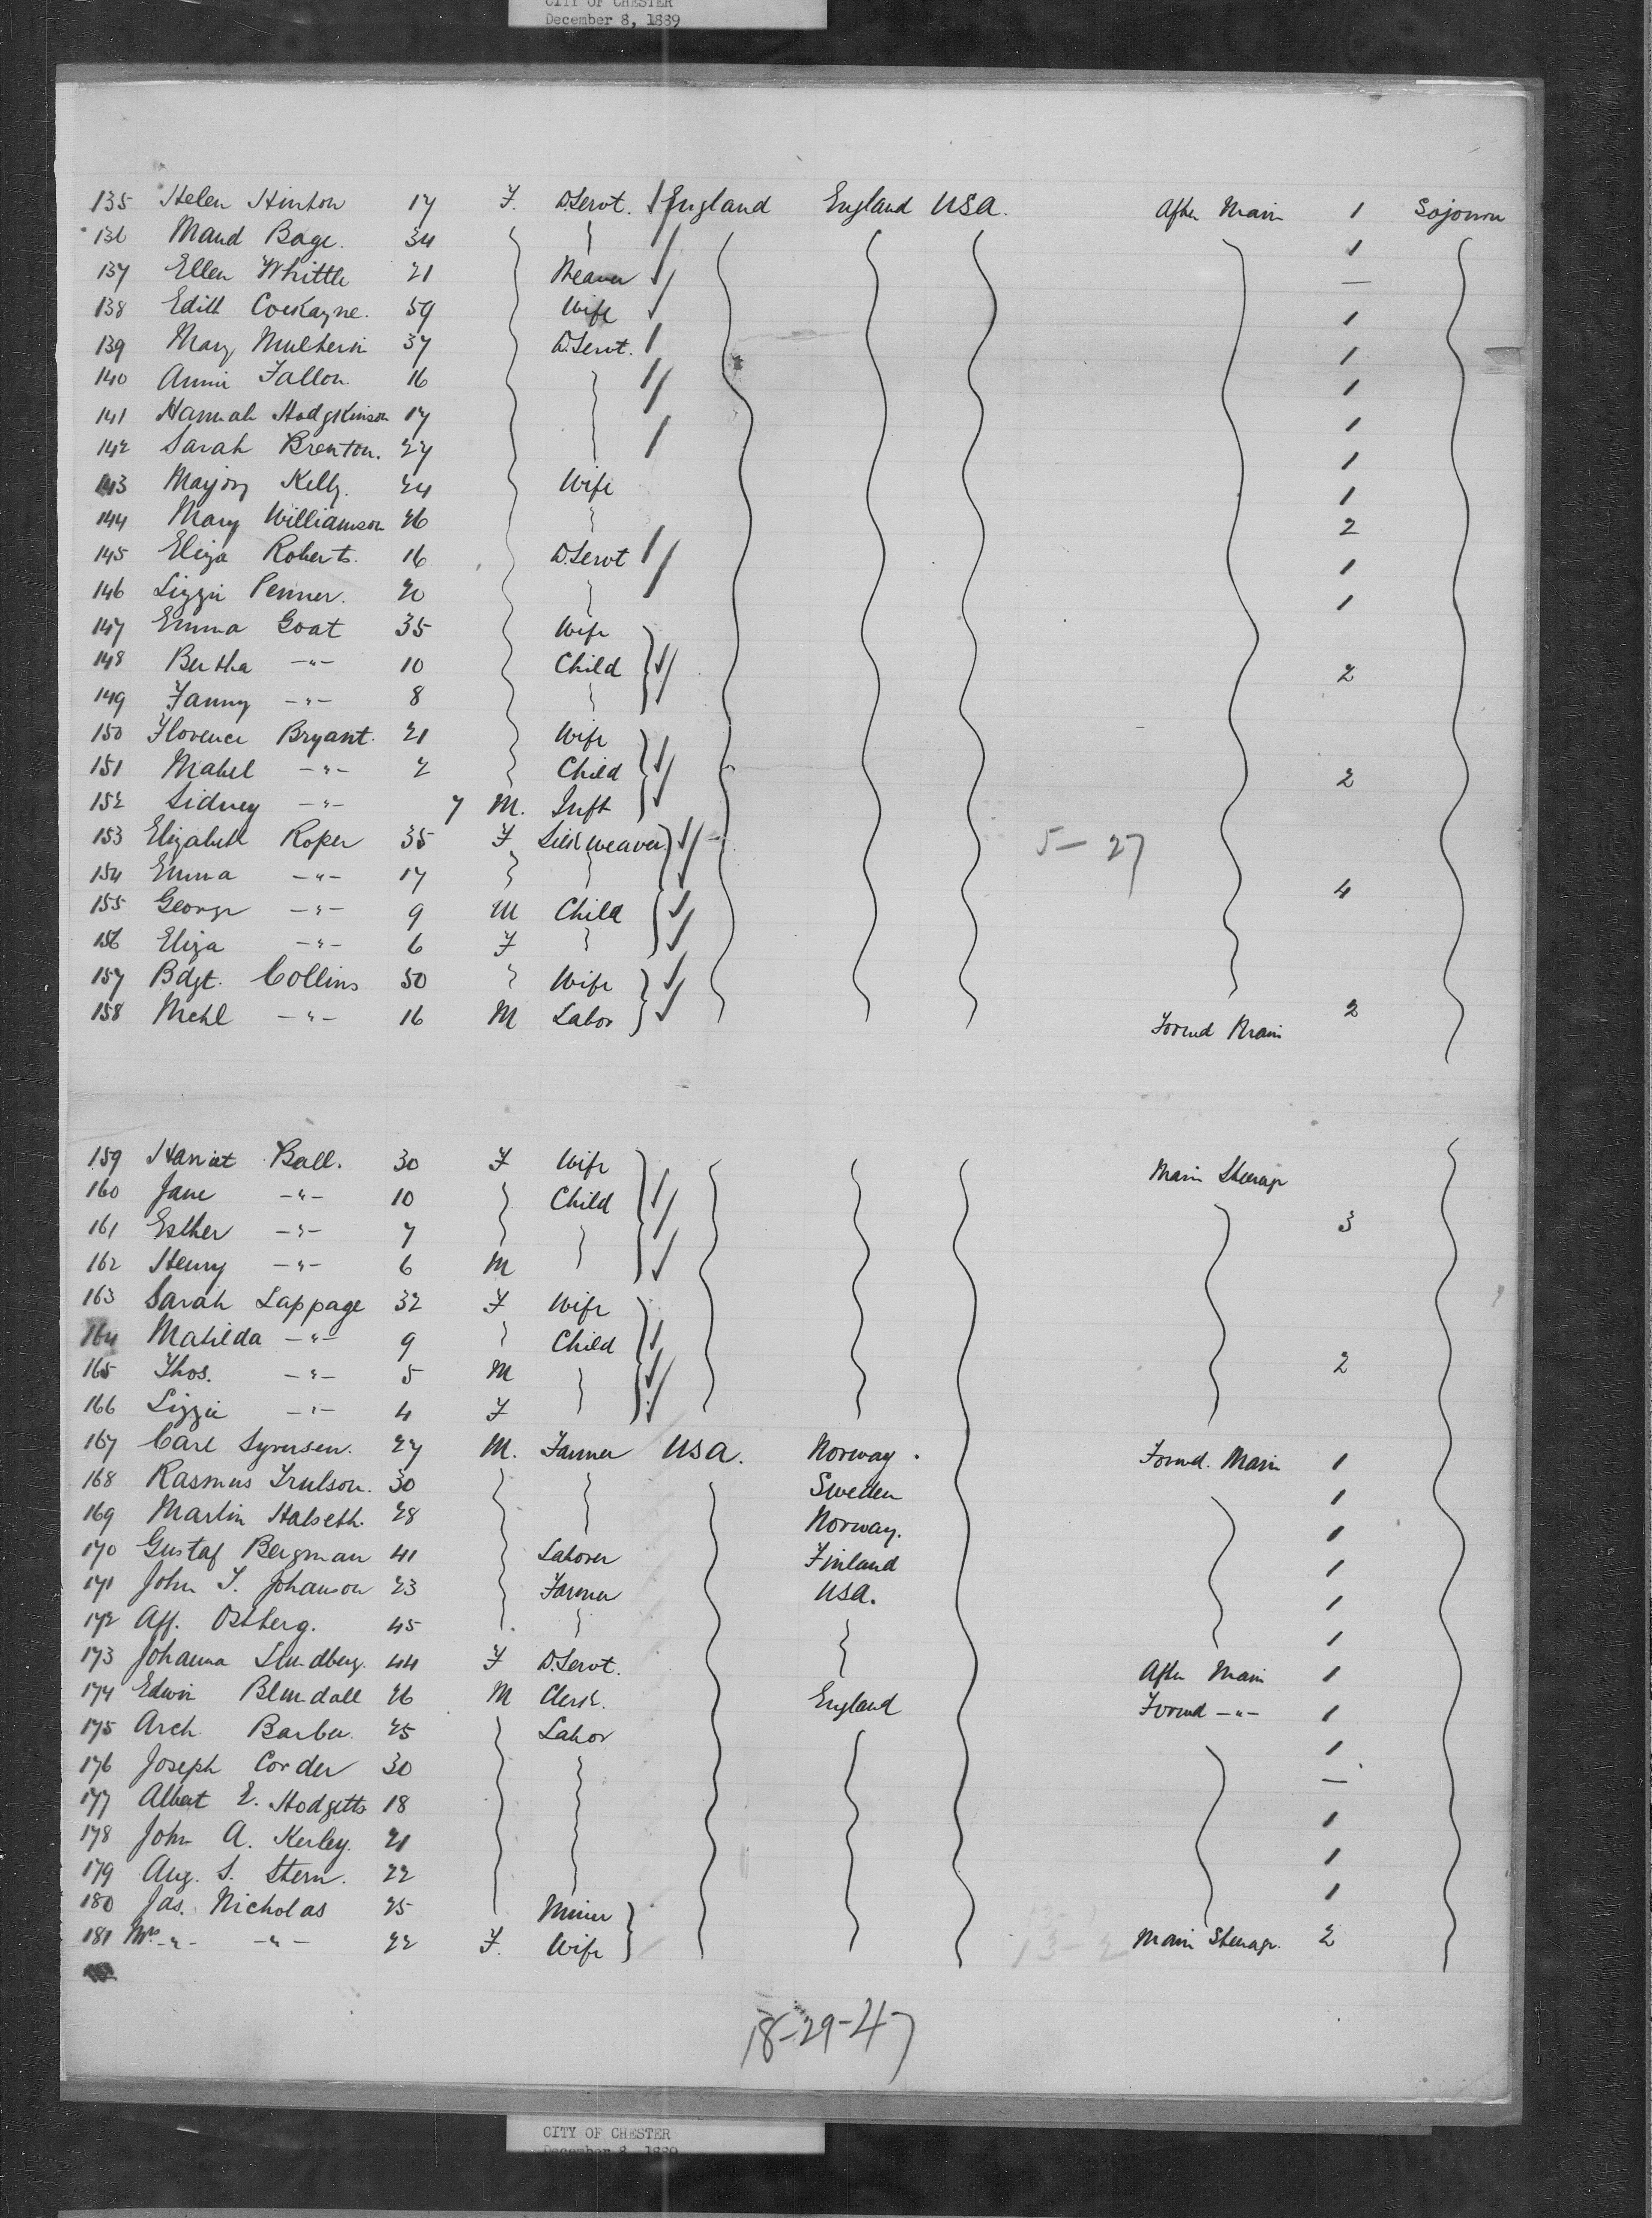 CITY OF CHESTER
December 8, 1889
135 Helen Hinton 17 F. D.Servt. England England USA. After Main 1 Sojourn
136 Maud Bage. 34 1
137 Ellen Whittle 21 Weaver —
138 Edith Cockayne. 59 Wife 1
139 Mary Mulhern 37 D.Servt. 1
140 Annie Fallon 16 1
141 Hannah Hodgkinson 17 1
142 Sarah Brenton. 27 1
143 Marjory Kelly. 24 Wife 1
144 Mary Williamson 26 2
145 Eliza Roberts. 16 D.Servt 1
146 Lizzie Penner. 20 1
147 Emma Goat 35 Wife
148 Bertha -"- 10 Child 2
149 Fanny -"- 8
150 Florence Bryant. 21 Wife
151 Mabel -"- 2 Child 2
152 Sidney -"- 7 M. Inft
153 Elizabeth Roper 35 F Silk weaver 5 - 27
154 Emma -"- 17 4
155 George -"- 9 M Child
156 Eliza -"- 6 F
157 Bdgt. Collins 50 Wife
158 Mchl -"- 16 M Labor Forwd Main 2
159 Harriat Ball. 30 F Wife Main Steerage
160 Jane -"- 10 Child
161 Esther -"- 7 3
162 Henry -"- 6 M
163 Sarah Lappage 32 F Wife
164 Matilda -"- 9 Child
165 Thos. -"- 5 M 2
166 Lizzie -"- 4 F
167 Carl Syversen. 27 M. Farmer USA. Norway. Forwd. Main 1
168 Rasmus Trulson. 30 Sweden 1
169 Martin Halseth. 28 Norway. 1
170 Gustaf Bergman 41 Laborer Finland 1
171 John T. Johanson 23 Farmer USA. 1
172 Aff. Ostberg. 45 1
173 Johanna Lundberg. 44 F D.Servt. After Main 1
174 Edwin Blundall 26 M Clerk. England Forwd -"- 1
175 Arch. Barber. 25 Labor 1
176 Joseph Corder 30 —
177 Albert E. Hodgetts 18 1
178 John A. Kerley. 21 1
179 Aug. S. Stern. 22 1
180 Jas. Nicholas 25 Miner
181 Mrs -"- -"- 22 F. Wife Main Steerage. 2
18-29-47
CITY OF CHESTER
December 8, 1889